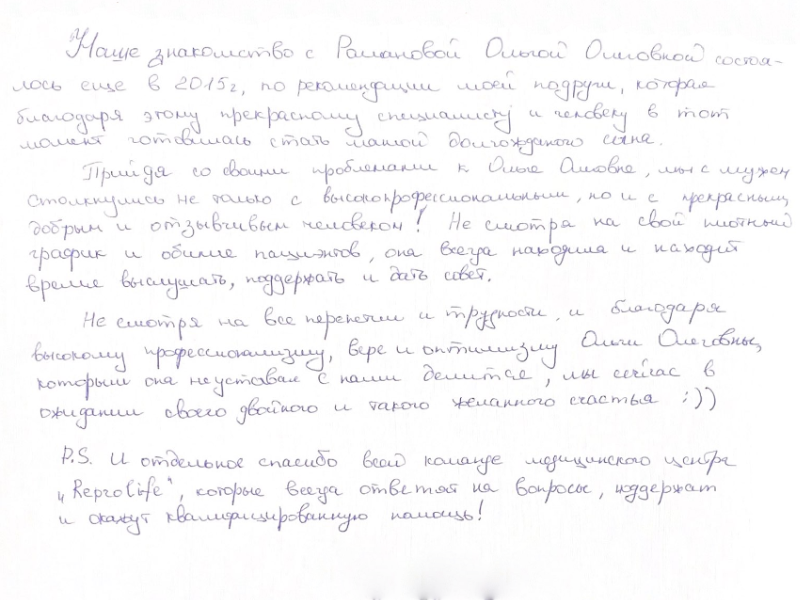 Наше знакомство с Рамановой Ольгой Олеговной состоя-
лось еще в 2015г, по рекомендации моей подруги, которая
благодаря этому прекрасному специалисту и человеку в тот
момент готовилась стать мамой долгожданого сына.
Прийдя со своими проблемами к Ольге Олеговне, мы с мужем
столкнулись не только с высокопрофессиональным, но и с прекрасным,
добрым и отзывчивым человеком! Не смотря на свой плотный
график и обилие пациэнтов, она всегда находила и находит
время выслушать, поддержать и дать совет.
Не смотря на все перепетии и трудности, и благодаря
высокому профессионализму, вере и оптимизму Ольги Олеговны,
которым она не уставая с нами делится, мы сейчас в
ожидании своего двойного и такого желанного счастья :))
P.S. И отдельное спасибо всей команде медицинского центра
„ReproLife", которые всегда ответят на вопросы, поддержат
и окажут квалифицированную помощь!